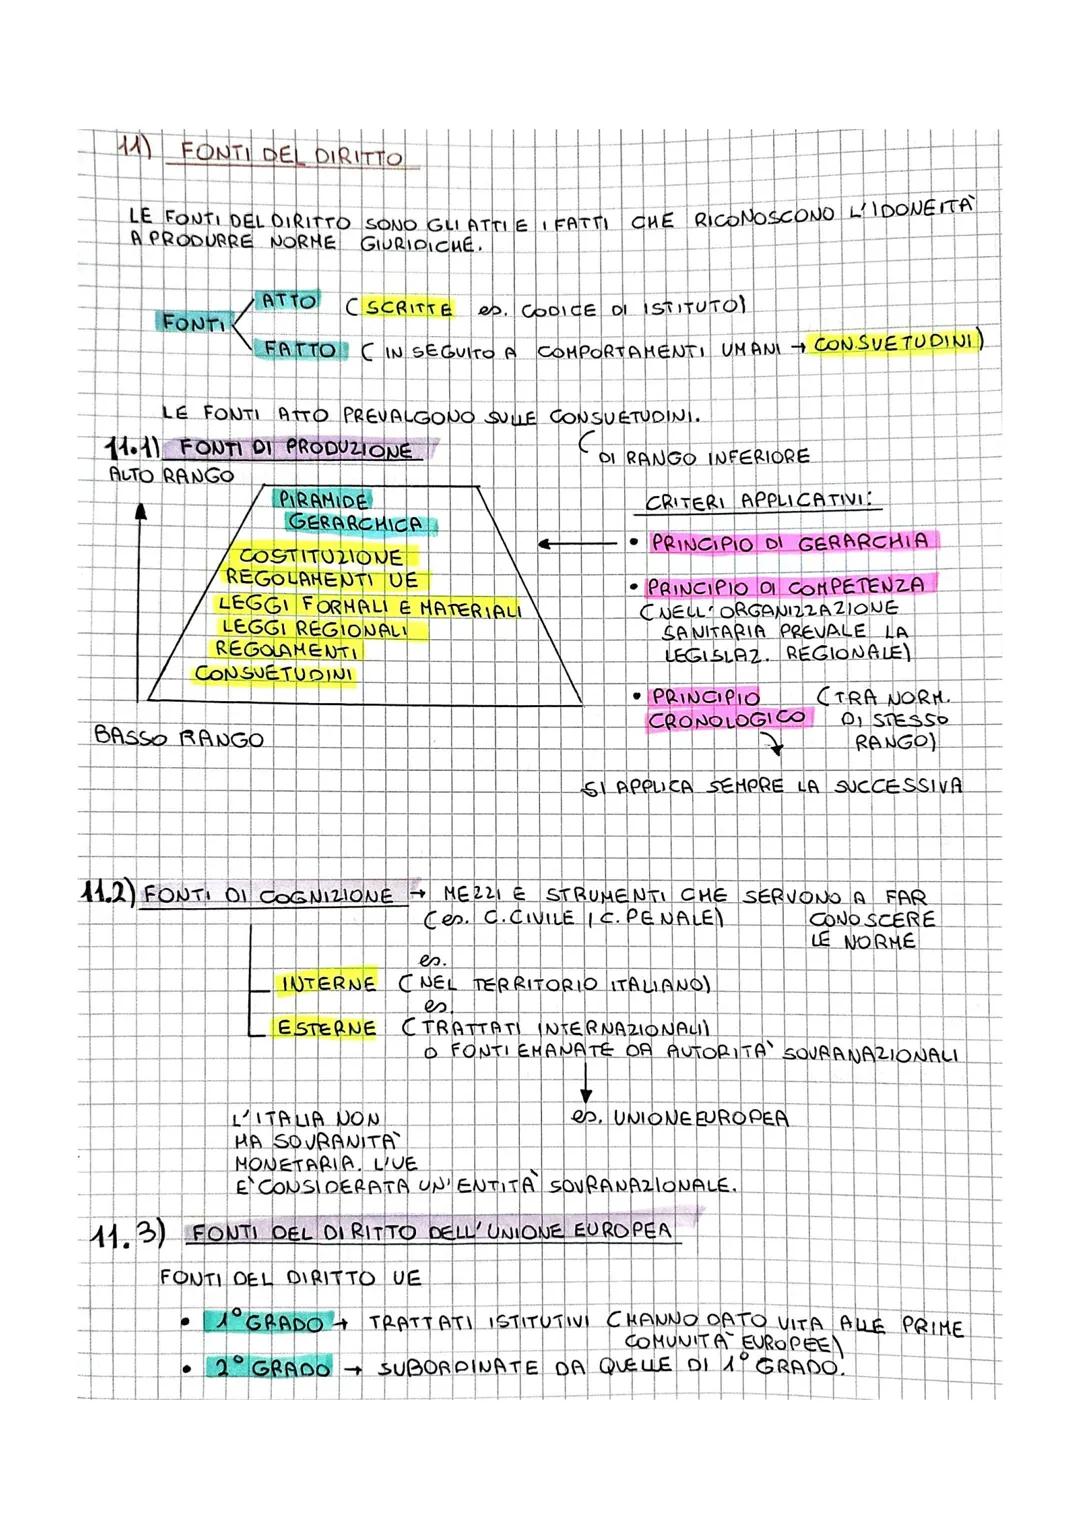 11) FONTI DEL DIRITTO
LE FONTI DEL DIRITTO SONO GLI ATTI E I FATTI CHE RICONOSCONO L'IDONEITÀ
A PRODURRE NORME GIURIDICHE.
ATTO (SCRITTE es. CODICE DI ISTITUTO)
FONTI
FATTO (IN SEGUITO A COMPORTAMENTI UMANI → CONSUETUDINI)
LE FONTI ATTO PREVALGONO SULLE CONSUETUDINI.
DI RANGO INFERIORE
11.1) FONTI DI PRODUZIONE
ALTO RANGO
PIRAMIDE
GERARCHICA
COSTITUZIONE
REGOLAMENTI UE
LEGGI FORMALI E MATERIALI
LEGGI REGIONALI
REGOLAMENTI
CONSUETUDINI
BASSO RANGO
CRITERI APPLICATIVI:
• PRINCIPIO DI GERARCHIA
• PRINCIPIO DI COMPETENZA
(NELL'ORGANIZZAZIONE
SANITARIA PREVALE LA
LEGISLAZ. REGIONALE)
• PRINCIPIO (TRA NORM.
CRONOLOGICO DI STESSO
RANGO)
SI APPLICA SEMPRE LA SUCCESSIVA
11.2) FONTI DI COGNIZIONE → MEZZI E STRUMENTI CHE SERVONO A FAR
(es. C.CIVILE, C.PENALE) CONOSCERE
LE NORME
es.
INTERNE (NEL TERRITORIO ITALIANO)
es.
ESTERNE (TRATTATI INTERNAZIONALI)
O FONTI EMANATE DA AUTORITA' SOVRANAZIONALI
es. UNIONE EUROPEA
L'ITALIA NON
HA SOVRANITÀ
MONETARIA. L'UE
E' CONSIDERATA UN'ENTITÀ SOVRANAZIONALE.
11.3) FONTI DEL DIRITTO DELL'UNIONE EUROPEA
FONTI DEL DIRITTO UE
• 1° GRADO → TRATTATI ISTITUTIVI (HANNO DATO VITA ALLE PRIME
COMUNITÀ EUROPEE)
• 2° GRADO → SUBORDINATE DA QUELLE DI 1° GRADO.